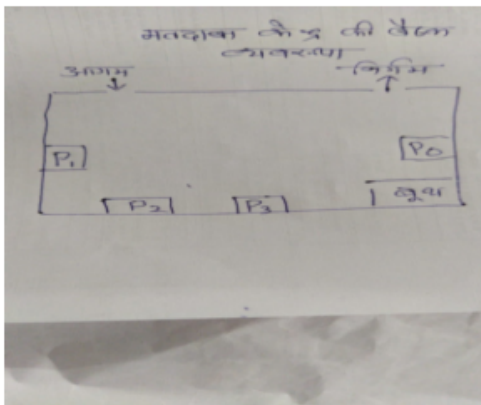 मतदाता केन्द्र की बैठक
व्यवस्था
आगम
निर्गम
P1
PO
P2
P3
बूथ